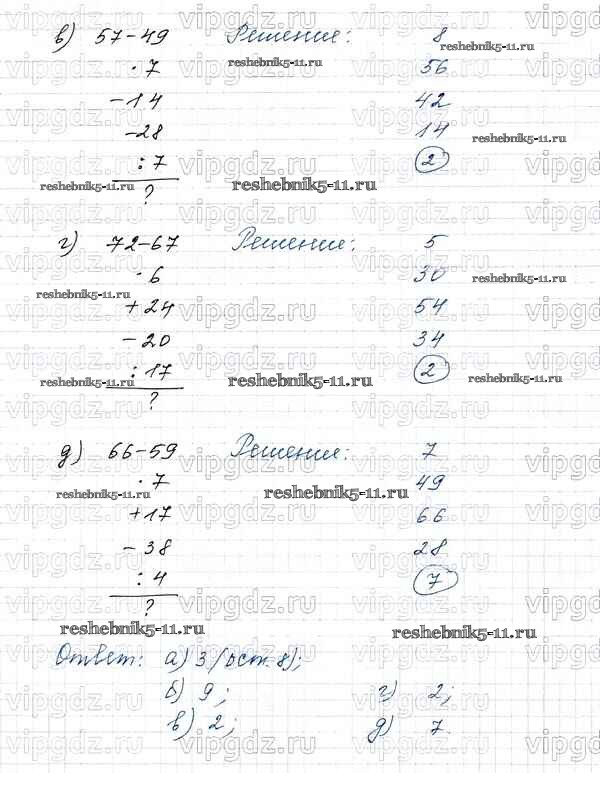 в) 57-49 Решение: 8
· 7 56
-14 42
-28 14
: 7 2
?
г) 72-67 Решение: 5
· 6 30
+ 24 54
- 20 34
: 17 2
?
д) 66-59 Решение: 7
· 7 49
+17 66
- 38 28
: 4 7
?
Ответ: а) 3 (ост. 8);
б) 9; г) 2;
в) 2; д) 7.
vipgdz.ru
reshebnik5-11.ru